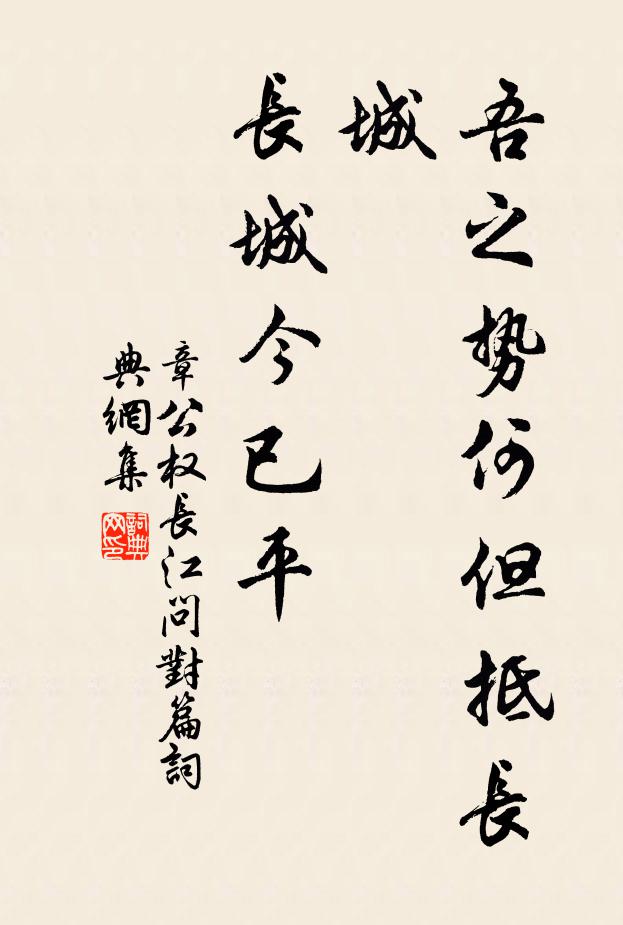 吾之势何但抵長
城
長城今已平
章公权長江問對篇詞
典網集
詞典
网印